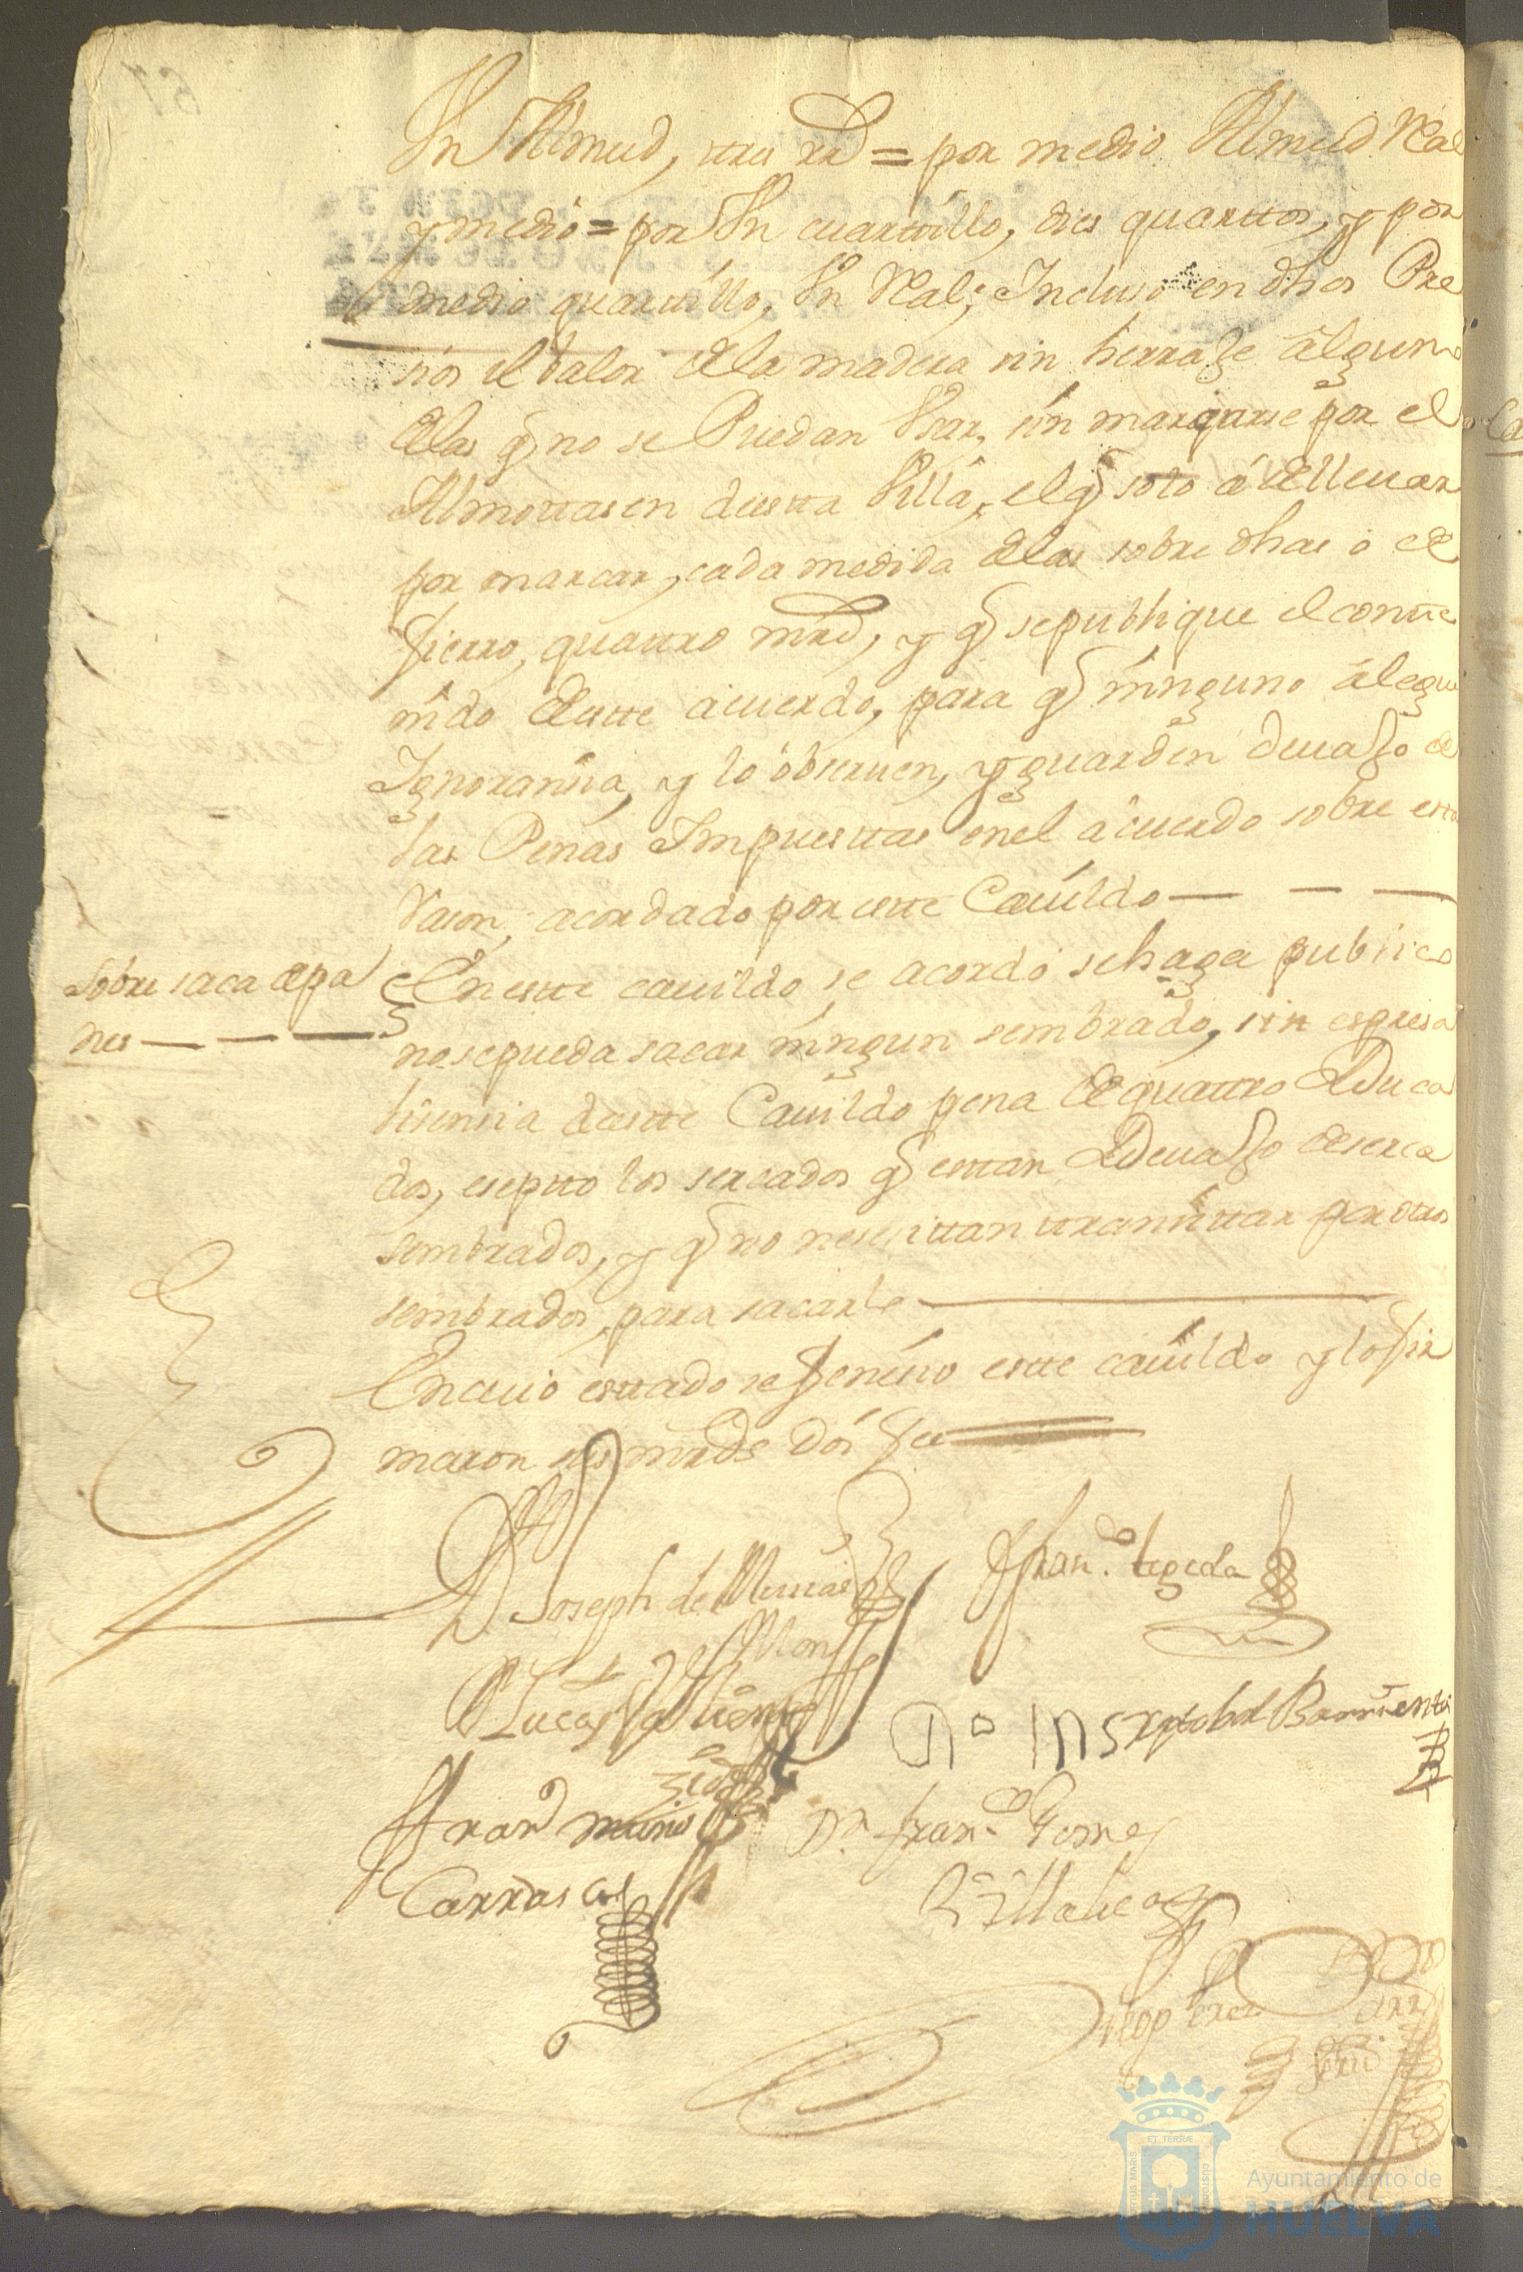 Vn Almud, ttres rrs = por medio Almud Real
y medio = por Vn cuarttillo, dies quarttos, y por
medio quarttillo, Vn Real; Incluso en dhos Pre
sios el balor de la madera sin herraje alguno
de las q no se Puedan Vsar, sin marcarse por el
Almottasen de estta Villa, el q solo á de lleuar
por marcar, cada medida de las sobre dhas o de
fierro, quattro mrs, y q se publique el contte
nido de estte acuerdo, para q ninguno alegue
Ignoransia, y lo obseruen, y guarden deuajo de
las Penas Impuesttas en el acuerdo sobre estta
Rason, acordado por estte Cauildo — — —
Sobre saca de pa
nes — — —
En estte cauildo se acordó se haga publico
no se pueda sacar ningun sembrado, sin espresa
lisensia de estte Cauildo pena de quattro Duca
dos, esepto los sercados q esttan Deuajo de serca
sembrados, y q no nesesittan ttransittar por otros
sembrados, para sacarlo —
En cuio esttado se fenesio estte cauildo y lo fir
maron sus mrds Doi fee
Dn Joseph de
Fran.co tegeda
Lucas
Xptobal Barriento
Fran.co
Carrascal
Dn fran.co Gomes
Diego Perez
ET TERRÆ
Ayuntamiento de
HUELVA